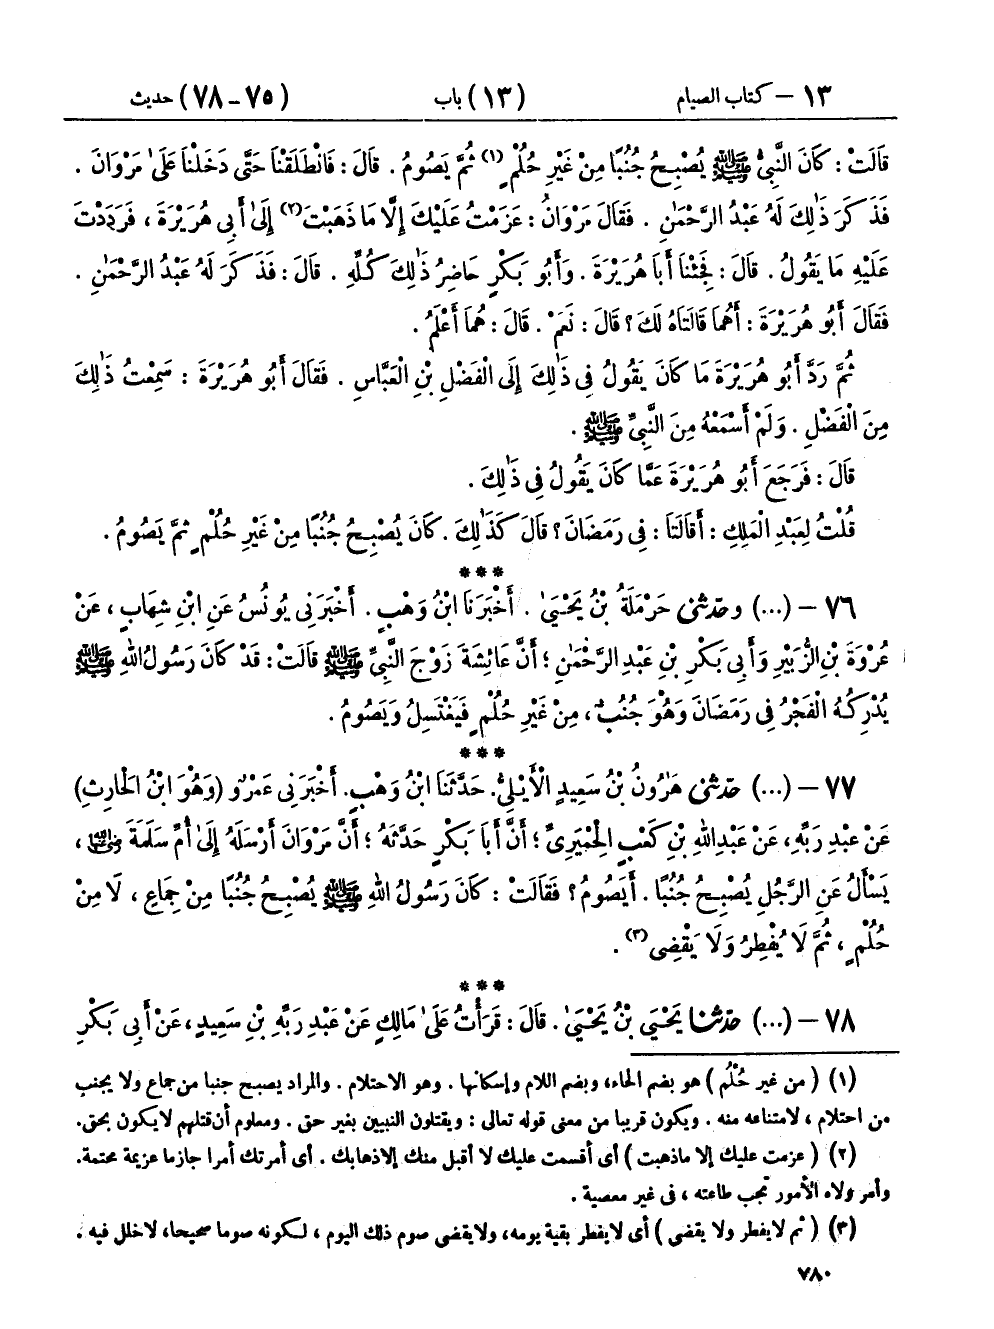 ١٣ – كتاب الصيام (١٣) باب (٧٥-٧٨) حديث
قَالَتْ : كَانَ النَّبِيُّ ﷺ يُصْبِحُ جُنُبًا مِنْ غَيْرِ حُلُمٍ (١) ثُمَّ يَصُومُ . قَالَ : فَانْطَلَقْنَا حَتَّى دَخَلْنَا عَلَى مَرْوَانَ .
فَذَكَرَ ذَٰلِكَ لَهُ عَبْدُ الرَّحْمَٰنِ . فَقَالَ مَرْوَانُ : عَزَمْتُ عَلَيْكَ إِلَّا مَا ذَهَبْتَ (٢) إِلَىٰ أَبِي هُرَيْرَةَ ، فَرَدَدْتَ
عَلَيْهِ مَا يَقُولُ . قَالَ : فَجِئْنَا أَبَا هُرَيْرَةَ . وَأَبُو بَكْرٍ حَاضِرُ ذَٰلِكَ كُلِّهِ . قَالَ : فَذَكَرَ لَهُ عَبْدُ الرَّحْمَٰنِ .
فَقَالَ أَبُو هُرَيْرَةَ : أَهُمَا قَالَتَاهُ لَكَ ؟ قَالَ : نَعَمْ . قَالَ : هُمَا أَعْلَمُ .
ثُمَّ رَدَّ أَبُو هُرَيْرَةَ مَا كَانَ يَقُولُ فِي ذَٰلِكَ إِلَى الْفَضْلِ بْنِ الْعَبَّاسِ . فَقَالَ أَبُو هُرَيْرَةَ : سَمِعْتُ ذَٰلِكَ
مِنَ الْفَضْلِ . وَلَمْ أَسْمَعْهُ مِنَ النَّبِيِّ ﷺ .
قَالَ : فَرَجَعَ أَبُو هُرَيْرَةَ عَمَّا كَانَ يَقُولُ فِي ذَٰلِكَ .
قُلْتُ لِعَبْدِ الْمَلِكِ : أَقَالَتَا : فِي رَمَضَانَ ؟ قَالَ كَذَٰلِكَ . كَانَ يُصْبِحُ جُنُبًا مِنْ غَيْرِ حُلُمٍ ثُمَّ يَصُومُ .
***
٧٦ – (...) وحدّثني حَرْمَلَةُ بْنُ يَحْيَىٰ . أَخْبَرَنَا ابْنُ وَهْبٍ . أَخْبَرَنِي يُونُسُ عَنِ ابْنِ شِهَابٍ ، عَنْ
عُرْوَةَ بْنِ الزُّبَيْرِ وَأَبِي بَكْرِ بْنِ عَبْدِ الرَّحْمَٰنِ ؛ أَنَّ عَائِشَةَ زَوْجَ النَّبِيِّ ﷺ قَالَتْ : قَدْ كَانَ رَسُولُ اللهِ ﷺ
يُدْرِكُهُ الْفَجْرُ فِي رَمَضَانَ وَهُوَ جُنُبٌ ، مِنْ غَيْرِ حُلُمٍ فَيَغْتَسِلُ وَيَصُومُ .
***
٧٧ – (...) حدّثني هَٰرُونُ بْنُ سَعِيدٍ الْأَيْلِيُّ. حَدَّثَنَا ابْنُ وَهْبٍ . أَخْبَرَنِي عَمْرٌو (وَهُوَ ابْنُ الْحَارِثِ)
عَنْ عَبْدِ رَبِّهِ، عَنْ عَبْدِ اللهِ بْنِ كَعْبٍ الْحِمْيَرِيِّ ؛ أَنَّ أَبَا بَكْرٍ حَدَّثَهُ ؛ أَنَّ مَرْوَانَ أَرْسَلَهُ إِلَىٰ أُمِّ سَلَمَةَ رضي الله عنها ،
يَسْأَلُ عَنِ الرَّجُلِ يُصْبِحُ جُنُبًا . أَيَصُومُ ؟ فَقَالَتْ : كَانَ رَسُولُ اللهِ ﷺ يُصْبِحُ جُنُبًا مِنْ جِمَاعٍ ، لَا مِنْ
حُلُمٍ ، ثُمَّ لَا يُفْطِرُ وَلَا يَقْضِي (٣) .
***
٧٨ – (...) حدّثنا يَحْيَى بْنُ يَحْيَىٰ . قَالَ : قَرَأْتُ عَلَىٰ مَالِكٍ عَنْ عَبْدِ رَبِّهِ بْنِ سَعِيدٍ ، عَنْ أَبِي بَكْرِ
(١) ( من غير حُلُم ) هو بضم الحاء، وبضم اللام وإسكانها . وهو الاحتلام . والمراد يصبح جنبا من جماع ولا يجنب
من احتلام ، لامتناعه منه . ويكون قريبا من معنى قوله تعالى : ويقتلون النبيين بغير حق . ومعلوم أن قتلهم لا يكون بحق.
(٢) ( عزمت عليك إلا ماذهبت ) أى أقسمت عليك لا أقبل منك إلا ذهابك . أى أمرتك أمرا جازما عزيمة محتمة.
وأمر ولاء الأمور تجب طاعته ، فى غير معصية .
(٣) ( ثم لا يفطر ولا يقضى ) أى لا يفطر بقية يومه، ولا يقضى صوم ذلك اليوم ، لكونه صوما صحيحا، لا خلل فيه .
٧٨٠